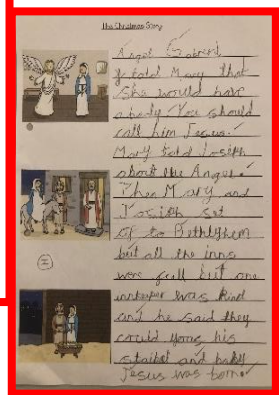 The Christmas Story
Angel Gabriel
told Mary that
she would have
a baby. You should
call him Jesus.
Mary told Joseph
about the Angel.
Then Mary and
Josith set
of to Bethlyhem
but all the inns
were full but one
innkeeper was kind
and he said they
could yous his
stabel and baby
Jesus was born.